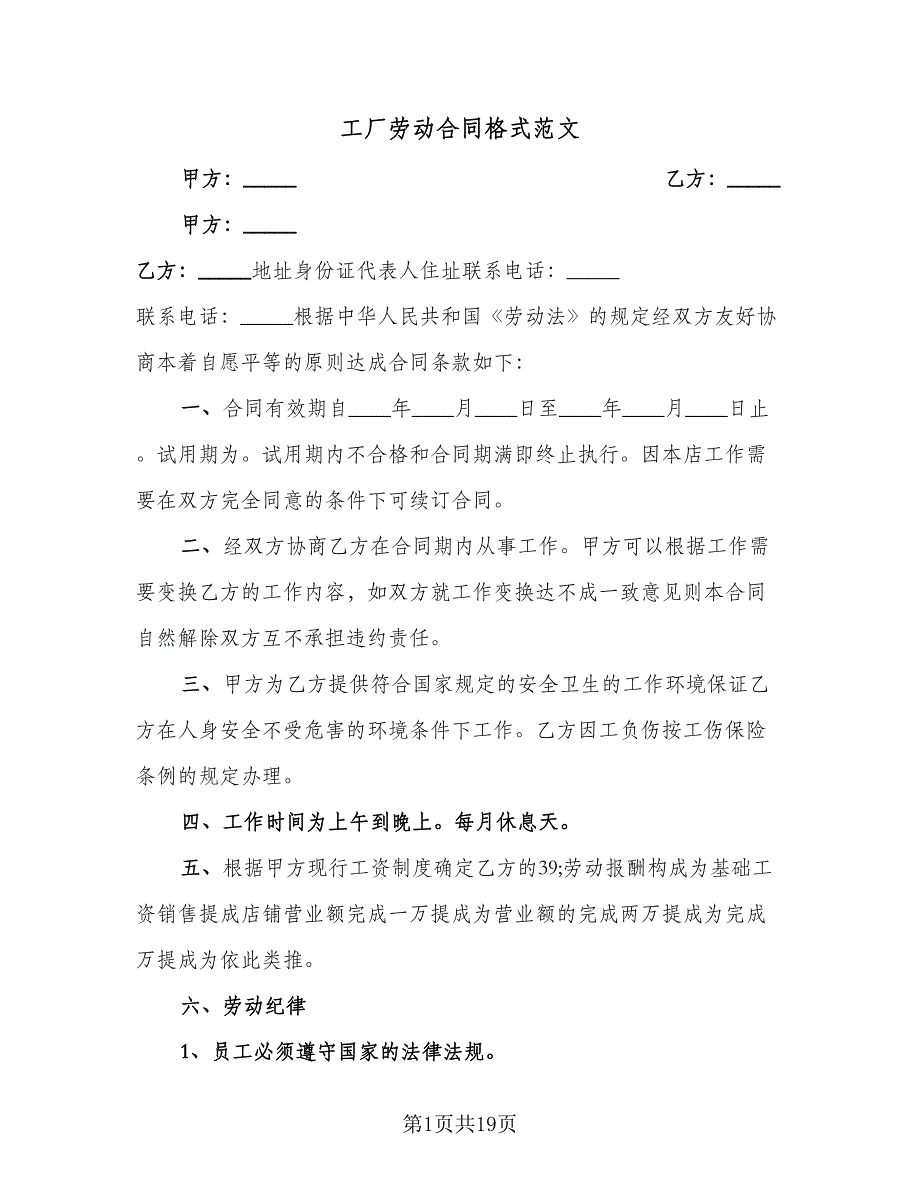 工厂劳动合同格式范文
甲方：_____ 乙方：_____
甲方：_____
乙方：_____地址身份证代表人住址联系电话：_____
联系电话：_____根据中华人民共和国《劳动法》的规定经双方友好协
商本着自愿平等的原则达成合同条款如下：
一、合同有效期自____年____月____日至____年____月____日止
。试用期为。试用期内不合格和合同期满即终止执行。因本店工作需
要在双方完全同意的条件下可续订合同。
二、经双方协商乙方在合同期内从事工作。甲方可以根据工作需
要变换乙方的工作内容，如双方就工作变换达不成一致意见则本合同
自然解除双方互不承担违约责任。
三、甲方为乙方提供符合国家规定的安全卫生的工作环境保证乙
方在人身安全不受危害的环境条件下工作。乙方因工负伤按工伤保险
条例的规定办理。
四、工作时间为上午到晚上。每月休息天。
五、根据甲方现行工资制度确定乙方的39;劳动报酬构成为基础工
资销售提成店铺营业额完成一万提成为营业额的完成两万提成为完成
万提成为依此类推。
六、劳动纪律
1、员工必须遵守国家的法律法规。
第1页共19页